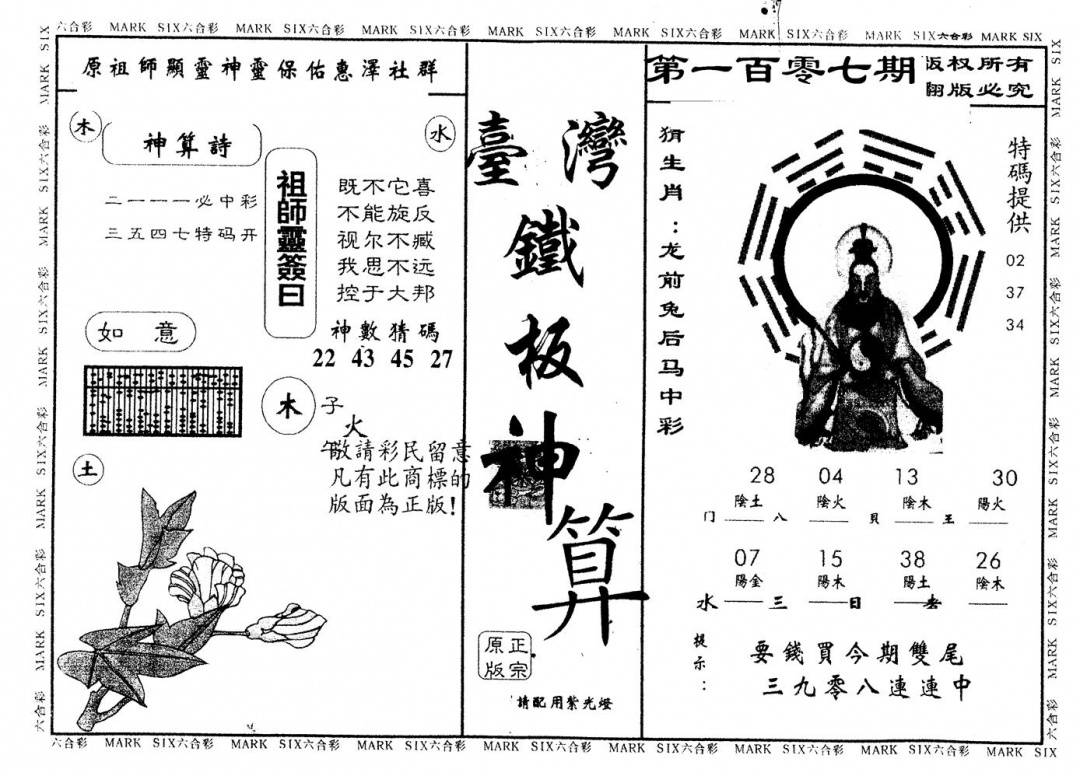 六合彩 MARK SIX六合彩 MARK SIX六合彩 MARK SIX六合彩 MARK SIX六合彩 MARK SIX六合彩 MARK SIX六合彩 MARK SIX六合彩 MARK SIX
原祖師顯靈神靈保佑惠澤社群
木
神算詩
水
二一一一必中彩
三五四七特码开
祖師靈簽曰
既不它喜
不能旋反
视尔不臧
我思不远
控于大邦
如意
神數猜碼
22 43 45 27
木
子
火
午敬請彩民留意
凡有此商標的
版面為正版!
土
臺灣
鐵
板
神
算
正宗
原版
請配用紫光燈
第一百零七期
版权所有
翻版必究
猜生肖:龙前兔后马中彩
特碼提供
02
37
34
28 04 13 30
陰土 陰火 陰木 陽火
门 八 貝 王
07 15 38 26
陽金 陽木 陽土 陰木
水 三 日 老
提示:
要錢買今期雙尾
三九零八連連中
六合彩 MARK SIX六合彩 MARK SIX六合彩 MARK SIX六合彩 MARK SIX六合彩 MARK SIX六合彩 MARK SIX六合彩 MARK SIX六合彩 MARK SIX